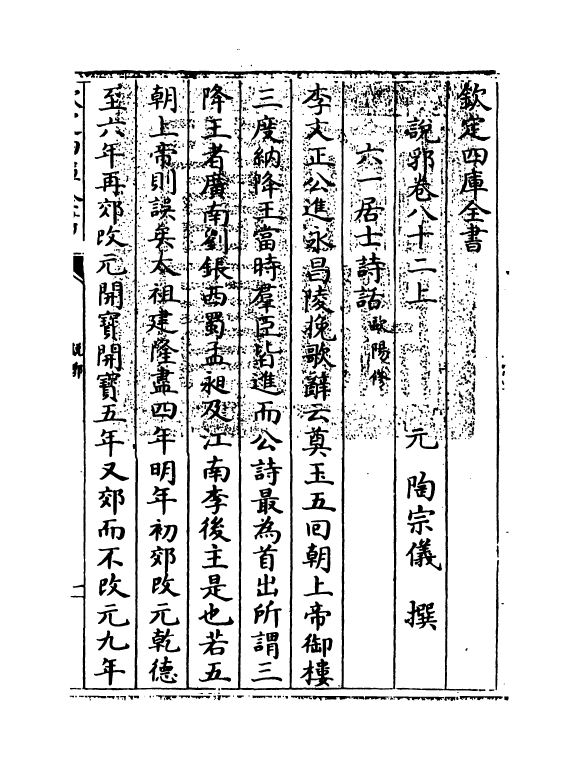 欽定四庫全書
說郛卷八十二上　元　陶宗儀　撰
六一居士詩話 歐陽修
李文正公進永昌陵挽歌辭云奠玉五回朝上帝御樓
三度納降王當時羣臣皆進而公詩最為首出所謂三
降王者廣南劉鋹西蜀孟昶及江南李後主是也若五
朝上帝則誤矣太祖建隆盡四年明年初郊改元乾德
至六年再郊改元開寶開寶五年又郊而不改元九年
說郛